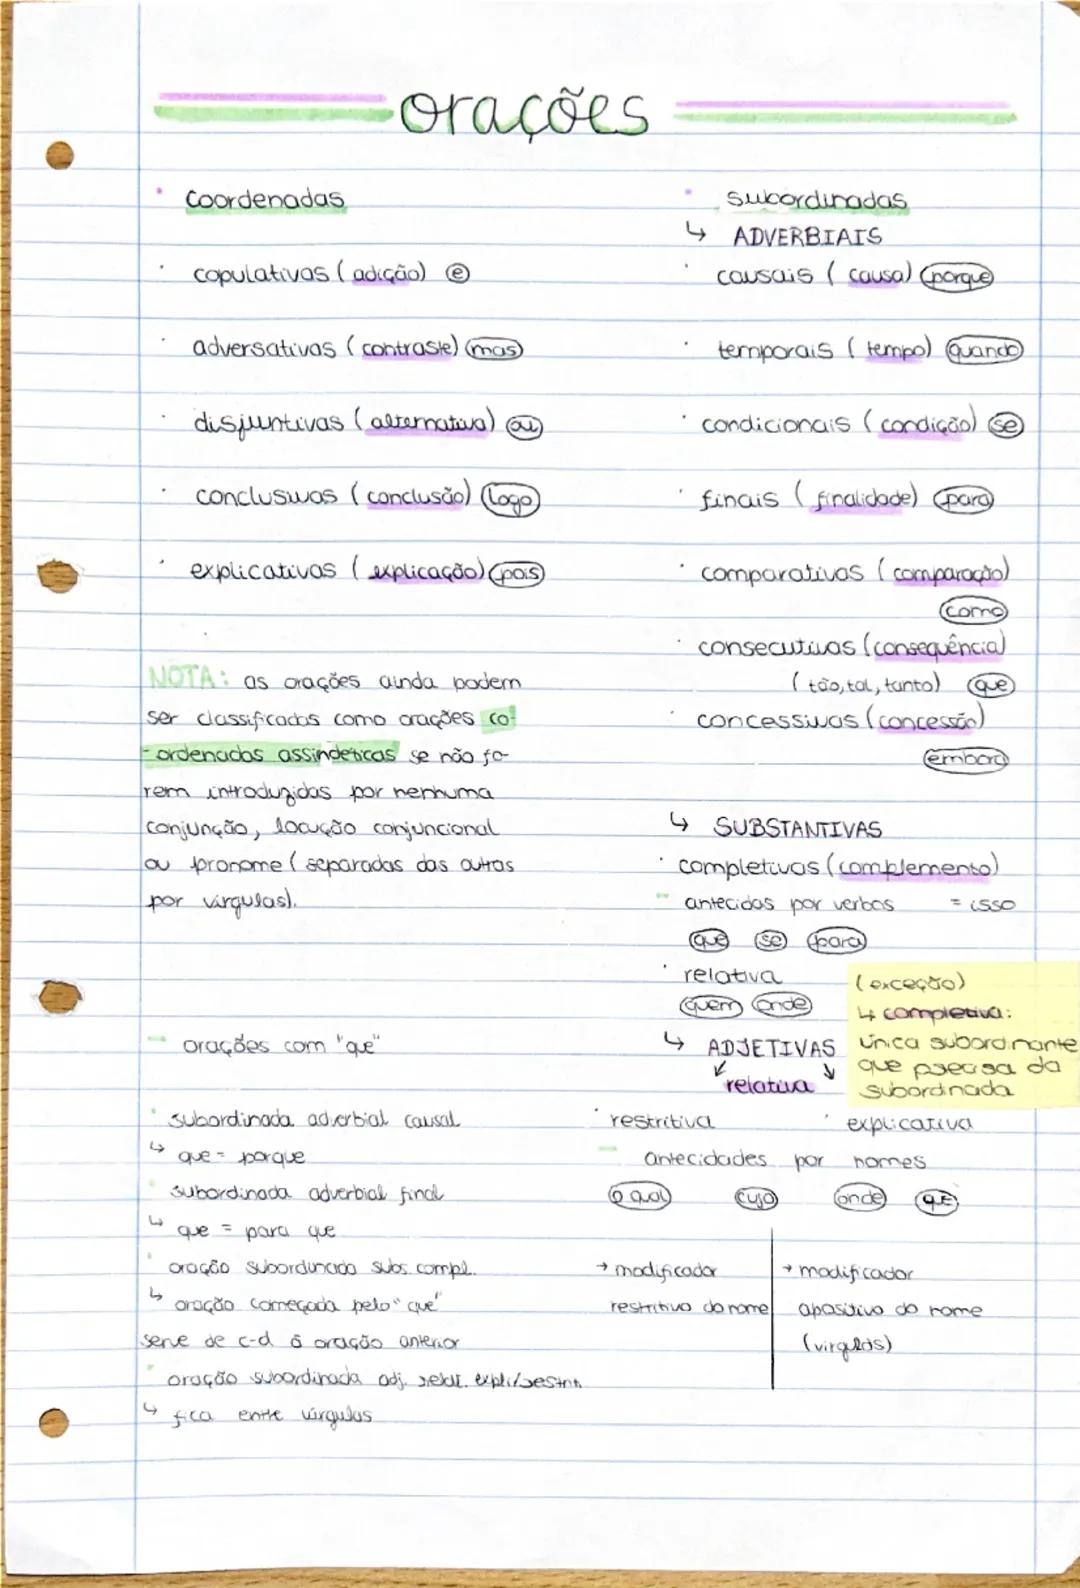 orações
coordenadas
copulativas (adição) e
adversativas (contraste) mas
disjuntivas (alternativa) ou
conclusivas (conclusão) logo
explicativas (explicação) pois
NOTA: as orações ainda podem
ser classificadas como orações co-
-ordenadas assindéticas se não fo-
rem introduzidas por nenhuma
conjunção, locução conjuncional
ou pronome (separadas das outras
por vírgulas).
orações com "que"
subordinada adverbial causal
↳ que = porque
subordinada adverbial final
↳ que = para que
oração subordinada subs. compl.
↳ oração começada pelo "que"
serve de c-d à oração anterior
oração subordinada adj. relat. expli/restrit.
↳ fica entre vírgulas
subordinadas
↳ ADVERBIAIS
causais (causa) porque
temporais (tempo) quando
condicionais (condição) se
finais (finalidade) para
comparativas (comparação)
como
consecutivas (consequência)
(tão, tal, tanto) que
concessivas (concessão)
embora
↳ SUBSTANTIVAS
completivas (complemento)
antecidas por verbos = isso
que se para
relativa
quem onde
(exceção)
↳ completiva:
única subordinante
que precisa da
subordinada
↳ ADJETIVAS
relativa
restritiva explicativa
antecidades por nomes
o qual cujo onde que
→ modificador
restritivo do nome
→ modificador
apositivo do nome
(vírgulas)